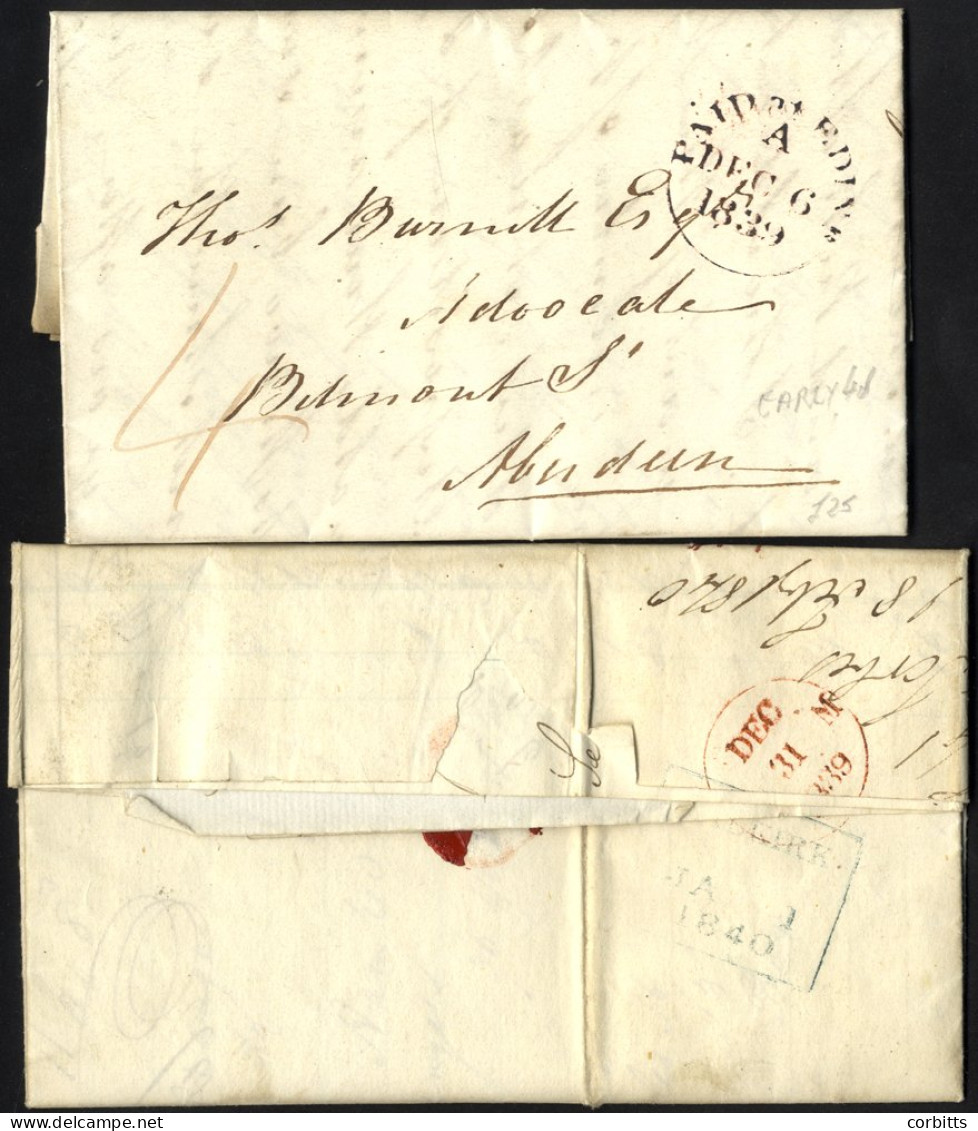 PAID AT EDIN
A
DEC 6
1839
Thos. Burnett Esq
Advocate
Belmont St
Aberdeen
4
EARLY 4d
£25
18 Feby 1840
Se
DEC M
31
1839
JA 1
1840
© corbitts